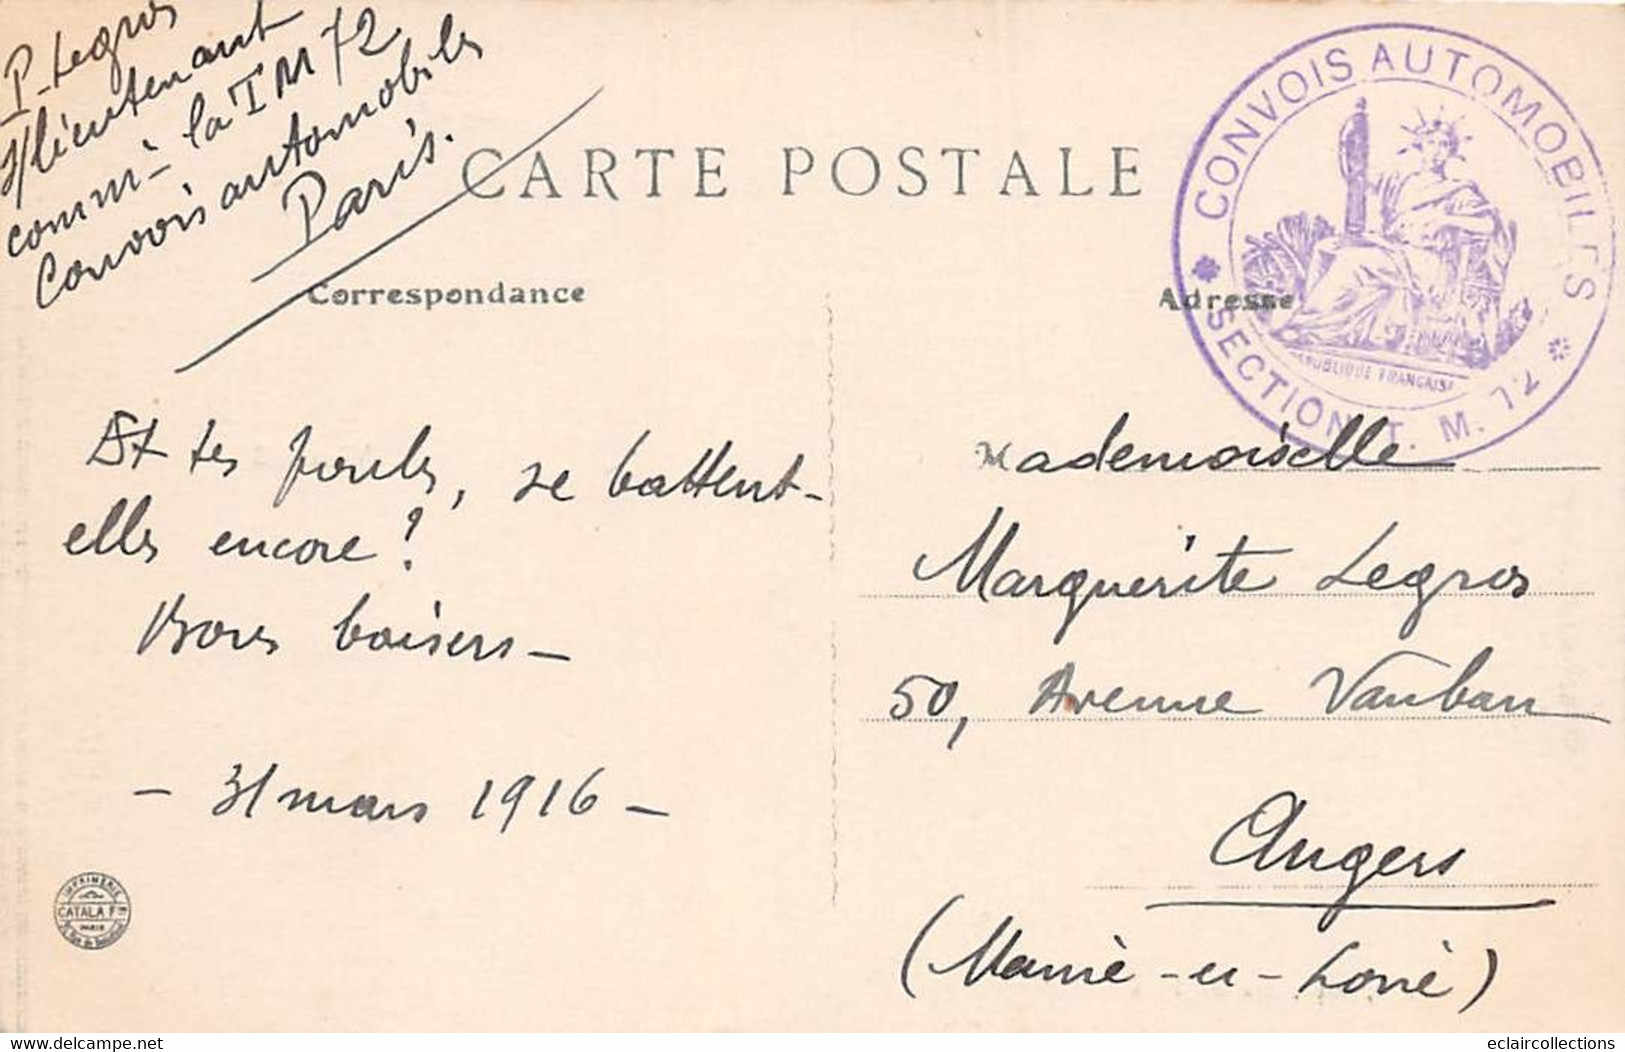 P. Legros
s/lieutenant
commt la TM 72
Convois automobiles
Paris.
CARTE POSTALE
Correspondance
Adresse
CONVOIS AUTOMOBILES
SECTION T. M. 72
RÉPUBLIQUE FRANÇAISE
Et tes poules, se battent-
elles encore?
Bons baisers -
- 31 mars 1916 -
Mademoiselle
Marguerite Legros
50, Avenue Vauban
Angers
(Maine-et-Loire)
IMPRIMERIE
CATALA Fres
PARIS
delcampe.net
eclaircollections